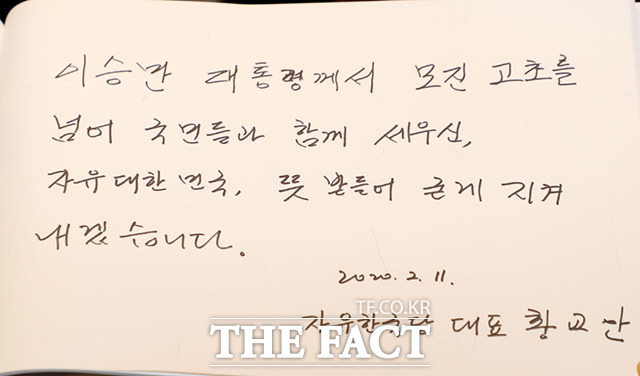 이승만 대통령께서 모진 고초를
넘어 국민들과 함께 세우신,
자유대한민국, 뜻 받들어 굳게 지켜
내겠습니다.
2020. 2. 11.
자유한국당 대표 황교안
TF.CO.KR
THE FACT